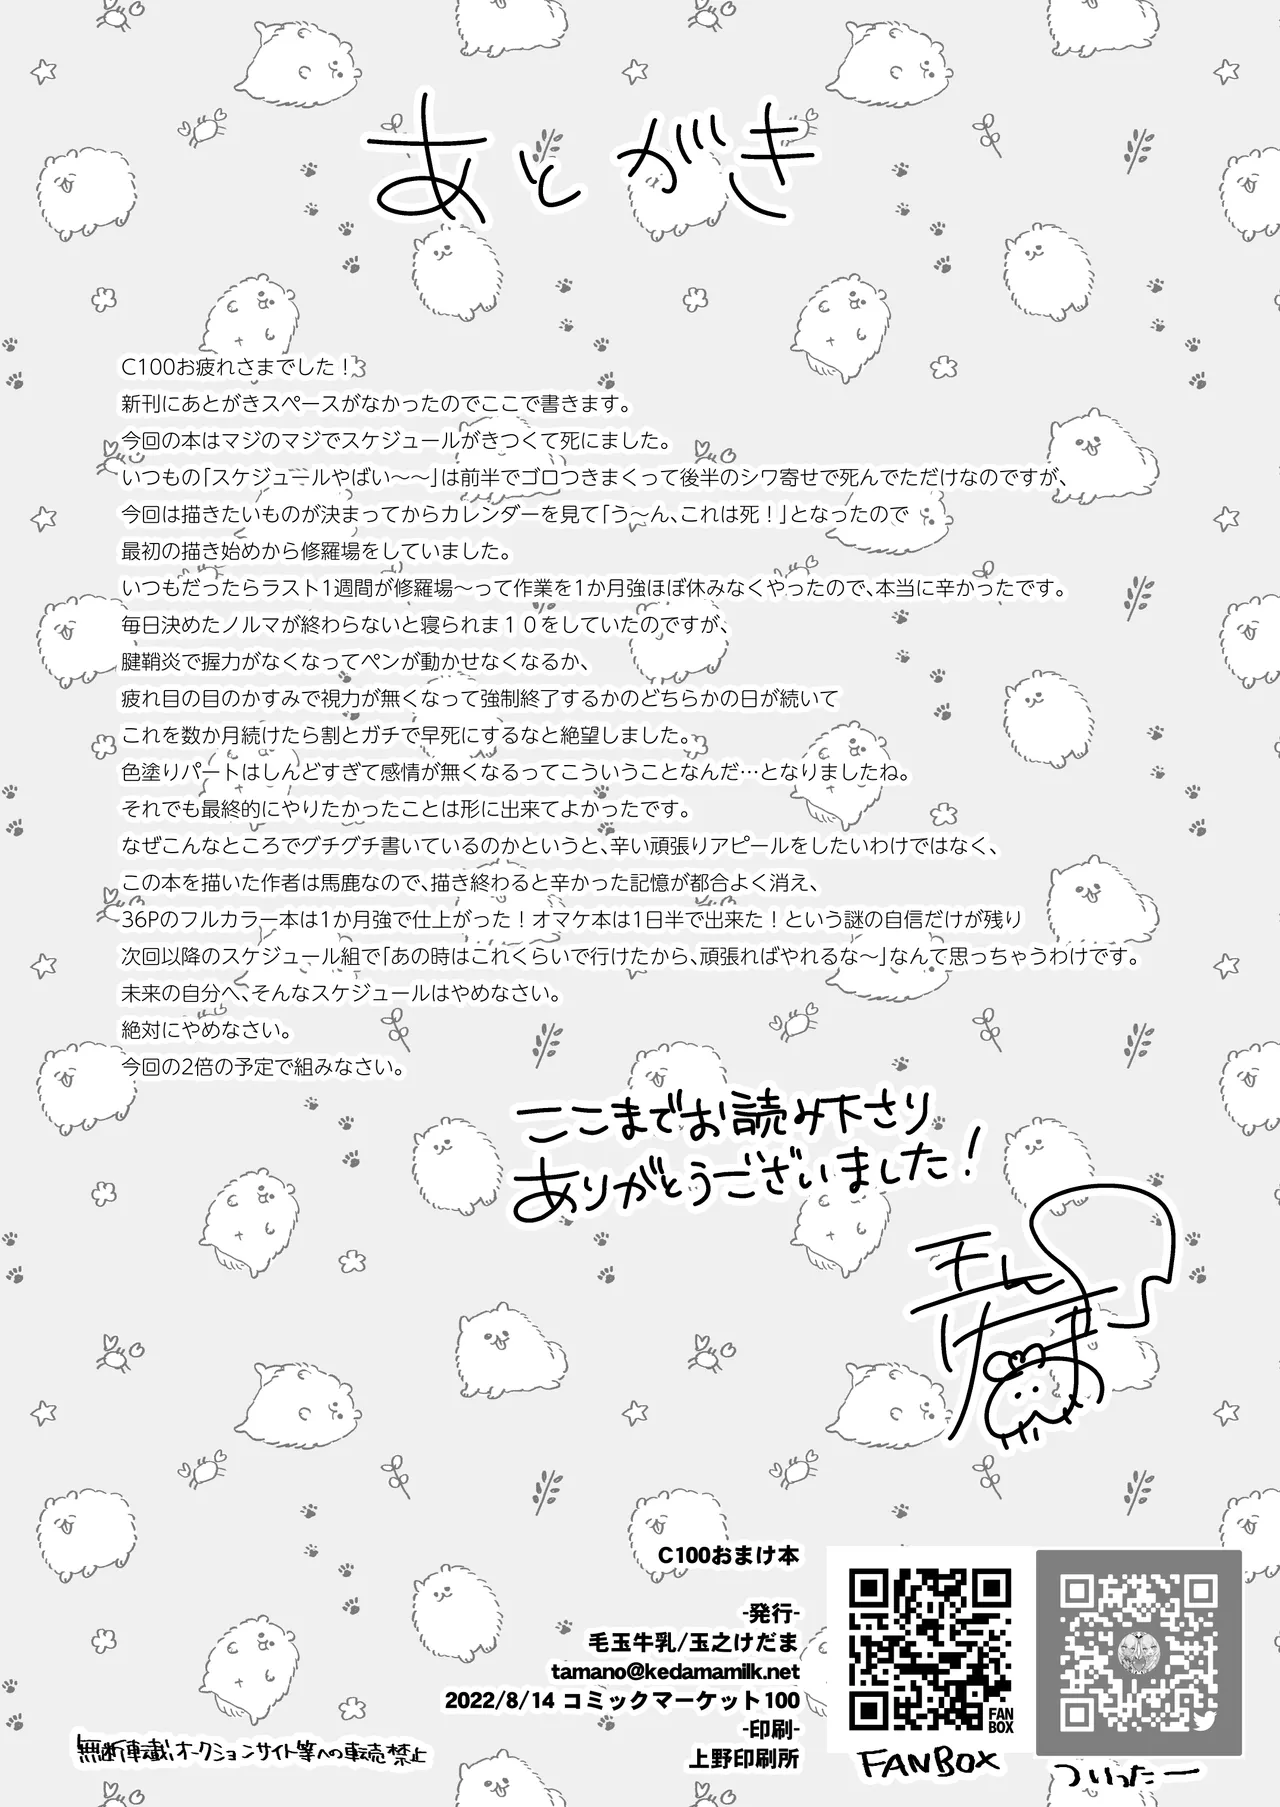 あとがき
C100お疲れさまでした!
新刊にあとがきスペースがなかったのでここで書きます。
今回の本はマジのマジでスケジュールがきつくて死にました。
いつもの「スケジュールやばい～～」は前半でゴロつきまくって後半のシワ寄せで死んでただけなのですが、
今回は描きたいものが決まってからカレンダーを見て「う～ん、これは死!」となったので
最初の描き始めから修羅場をしていました。
いつもだったらラスト1週間が修羅場～って作業を1か月強ほぼ休みなくやったので、本当に辛かったです。
毎日決めたノルマが終わらないと寝られま１０をしていたのですが、
腱鞘炎で握力がなくなってペンが動かせなくなるか、
疲れ目の目のかすみで視力が無くなって強制終了するかのどちらかの日が続いて
これを数か月続けたら割とガチで早死にするなと絶望しました。
色塗りパートはしんどすぎて感情が無くなるってこういうことなんだ…となりましたね。
それでも最終的にやりたかったことは形に出来てよかったです。
なぜこんなところでグチグチ書いているのかというと、辛い頑張りアピールをしたいわけではなく、
この本を描いた作者は馬鹿なので、描き終わると辛かった記憶が都合よく消え、
36Pのフルカラー本は1か月強で仕上がった!オマケ本は1日半で出来た!という謎の自信だけが残り
次回以降のスケジュール組で「あの時はこれくらいで行けたから、頑張ればやれるな～」なんて思っちゃうわけです。
未来の自分へ、そんなスケジュールはやめなさい。
絶対にやめなさい。
今回の2倍の予定で組みなさい。
ここまでお読み下さり
ありがとうございました!
C100おまけ本
-発行-
毛玉牛乳/玉之けだま
tamano@kedamamilk.net
2022/8/14 コミックマーケット100
-印刷-
上野印刷所
無断転載、オークションサイト等への転売禁止
FAN
BOX
FANBOX
ついったー